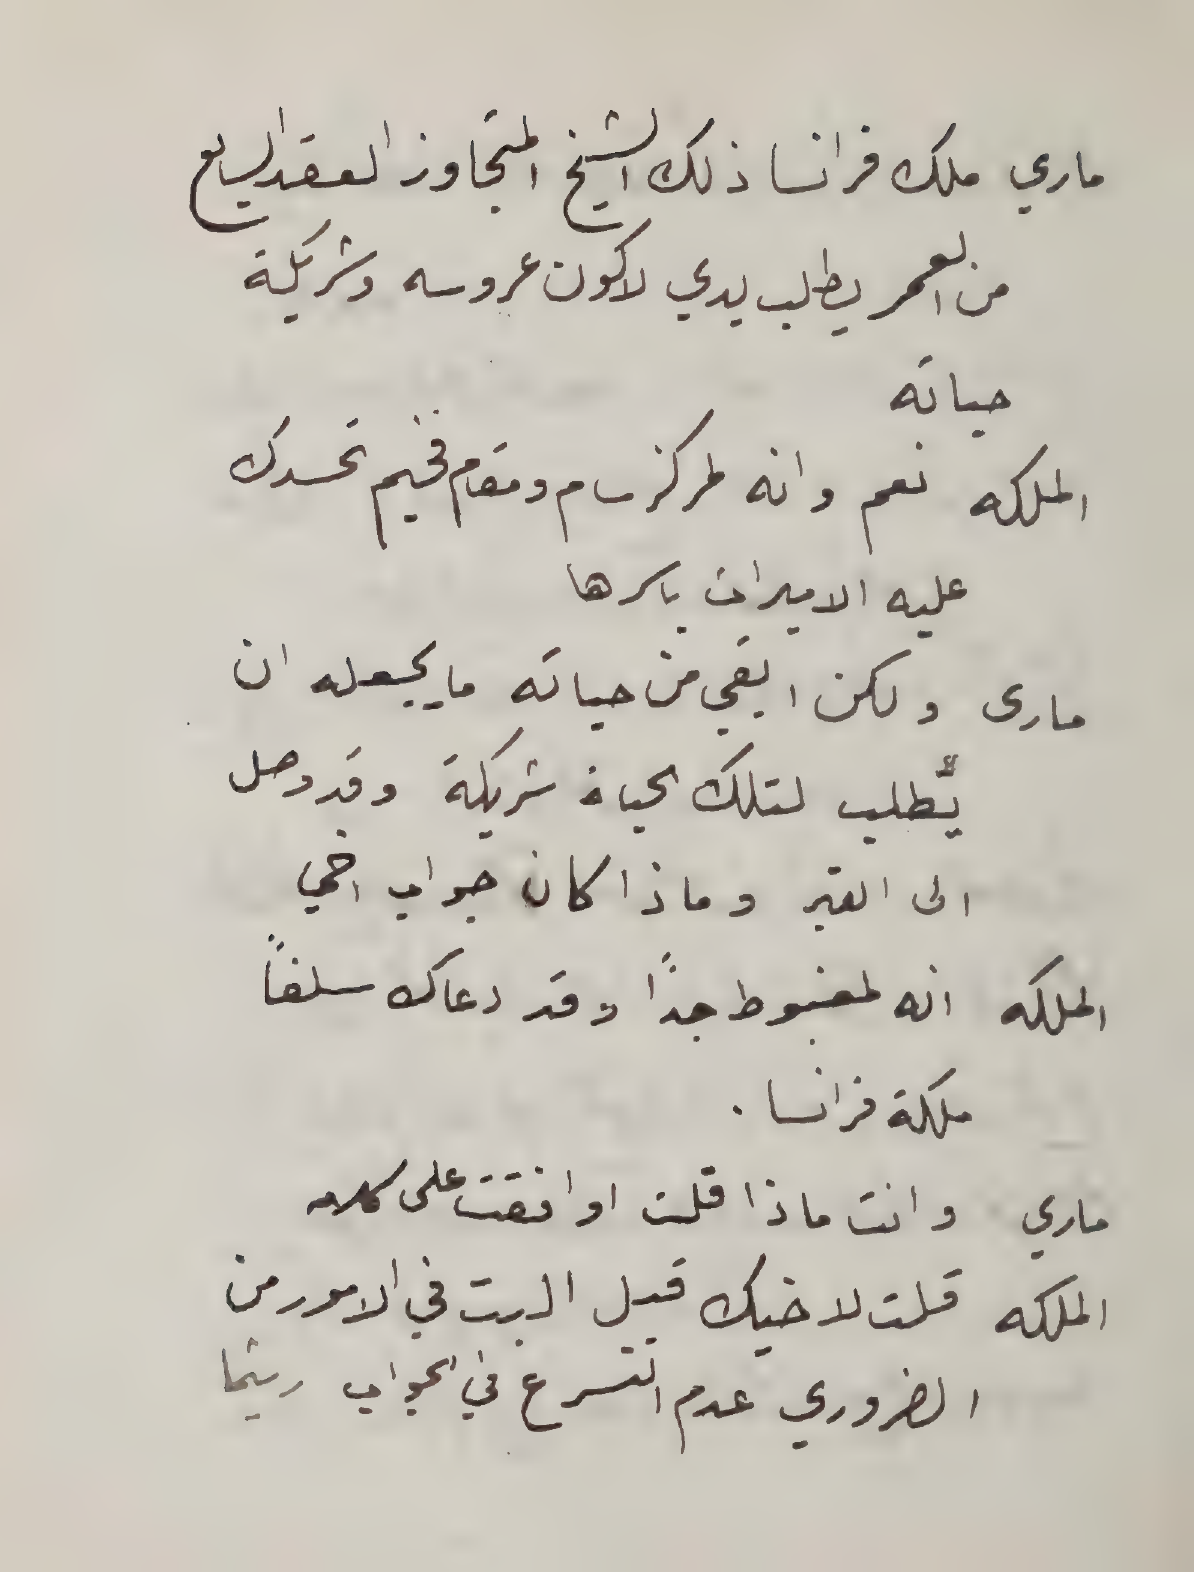 ماري ملك فرانسا ذلك الشيخ المتجاوز العقد السابع
من العمر يطلب يدي لاكون عروسه وشريكة
حياته
الملكه نعم وانه لمركز سام ومقام فخيم تحسدك
عليه الاميرات باسرها
مارى ولكن ابقي من حياته ما يجعله ان
يطلب لتلك الحياة شريكة وقد وصل
الى القبر وماذا كان جواب اخي
الملكه انه لمغبوط جداً وقد دعاك سلفاً
ملكة فرانسا .
ماري وانت ماذا قلت اوافقت على كلامه
الملكه قلت لاخيك قبل البت في الامور من
الضروري عدم التسرع في الجواب ريثما